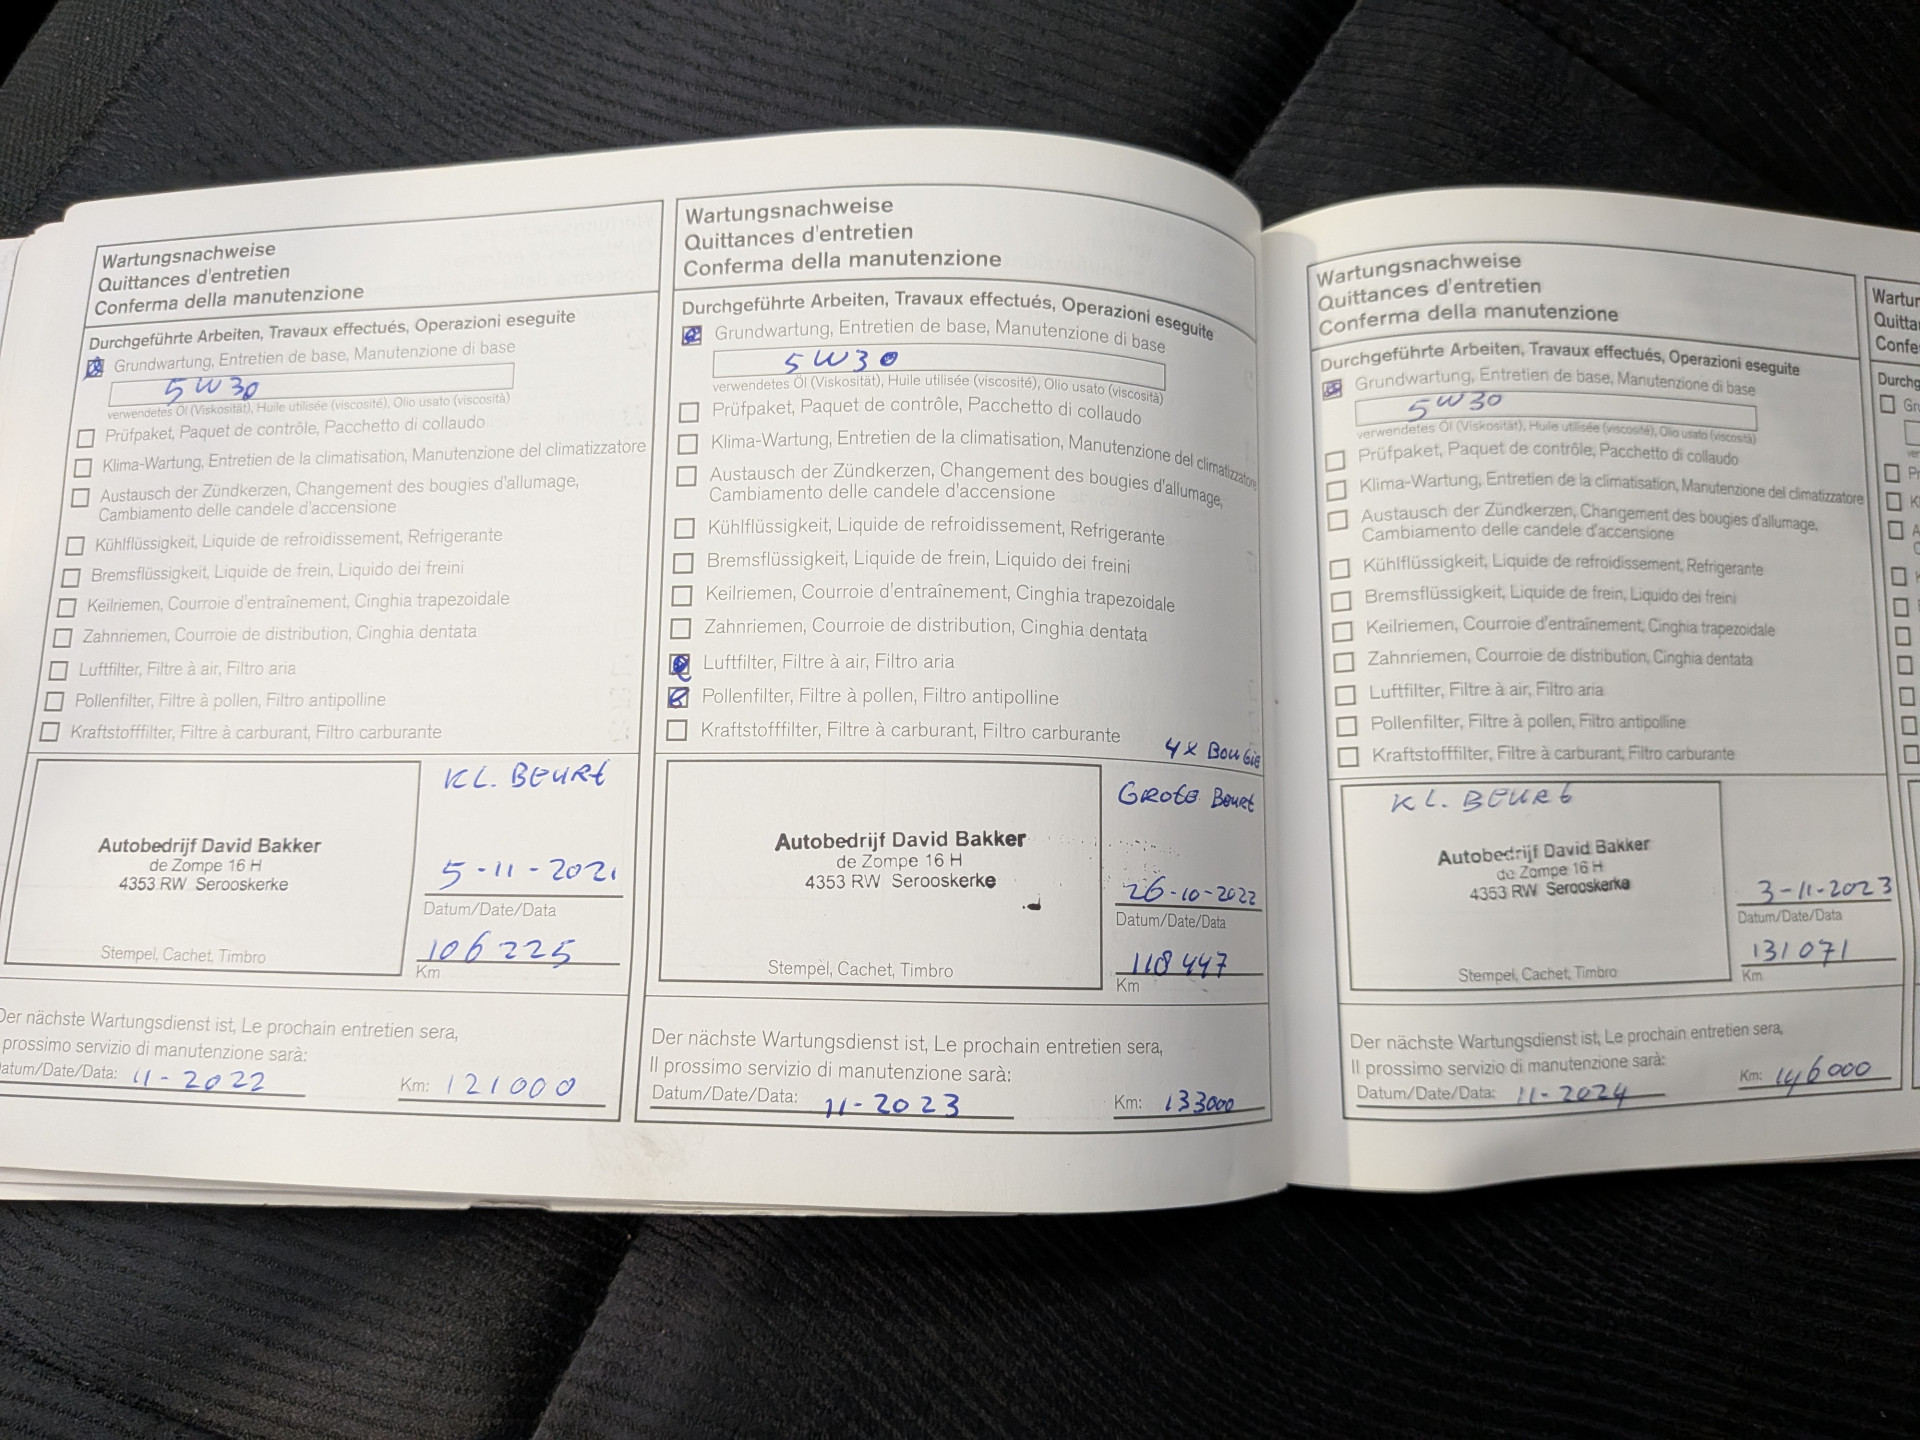 Wartungsnachweise
Quittances d'entretien
Conferma della manutenzione
Durchgeführte Arbeiten, Travaux effectués, Operazioni eseguite
Grundwartung, Entretien de base, Manutenzione di base
5W30
verwendetes Öl (Viskosität), Huile utilisée (viscosité), Olio usato (viscosità)
Prüfpaket, Paquet de contrôle, Pacchetto di collaudo
Klima-Wartung, Entretien de la climatisation, Manutenzione del climatizzatore
Austausch der Zündkerzen, Changement des bougies d'allumage,
Cambiamento delle candele d'accensione
Kühlflüssigkeit, Liquide de refroidissement, Refrigerante
Bremsflüssigkeit, Liquide de frein, Liquido dei freini
Keilriemen, Courroie d'entraînement, Cinghia trapezoidale
Zahnriemen, Courroie de distribution, Cinghia dentata
Luftfilter, Filtre à air, Filtro aria
Pollenfilter, Filtre à pollen, Filtro antipolline
Kraftstofffilter, Filtre à carburant, Filtro carburante
KL. BEURT
Autobedrijf David Bakker
de Zompe 16 H
4353 RW Serooskerke
5-11-2021
Datum/Date/Data
106225
Km
Stempel, Cachet, Timbro
Der nächste Wartungsdienst ist, Le prochain entretien sera,
prossimo servizio di manutenzione sarà:
Datum/Date/Data: 11-2022 Km: 121000
Wartungsnachweise
Quittances d'entretien
Conferma della manutenzione
Durchgeführte Arbeiten, Travaux effectués, Operazioni eseguite
Grundwartung, Entretien de base, Manutenzione di base
5W30
verwendetes Öl (Viskosität), Huile utilisée (viscosité), Olio usato (viscosità)
Prüfpaket, Paquet de contrôle, Pacchetto di collaudo
Klima-Wartung, Entretien de la climatisation, Manutenzione del climatizzatore
Austausch der Zündkerzen, Changement des bougies d'allumage,
Cambiamento delle candele d'accensione
Kühlflüssigkeit, Liquide de refroidissement, Refrigerante
Bremsflüssigkeit, Liquide de frein, Liquido dei freini
Keilriemen, Courroie d'entraînement, Cinghia trapezoidale
Zahnriemen, Courroie de distribution, Cinghia dentata
Luftfilter, Filtre à air, Filtro aria
Pollenfilter, Filtre à pollen, Filtro antipolline
Kraftstofffilter, Filtre à carburant, Filtro carburante
4x BOUGIE
GROTE BEURT
Autobedrijf David Bakker
de Zompe 16 H
4353 RW Serooskerke
26-10-2022
Datum/Date/Data
118447
Km
Stempel, Cachet, Timbro
Der nächste Wartungsdienst ist, Le prochain entretien sera,
Il prossimo servizio di manutenzione sarà:
Datum/Date/Data: 11-2023 Km: 133000
Wartungsnachweise
Quittances d'entretien
Conferma della manutenzione
Durchgeführte Arbeiten, Travaux effectués, Operazioni eseguite
Grundwartung, Entretien de base, Manutenzione di base
5W30
verwendetes Öl (Viskosität), Huile utilisée (viscosité), Olio usato (viscosità)
Prüfpaket, Paquet de contrôle, Pacchetto di collaudo
Klima-Wartung, Entretien de la climatisation, Manutenzione del climatizzatore
Austausch der Zündkerzen, Changement des bougies d'allumage,
Cambiamento delle candele d'accensione
Kühlflüssigkeit, Liquide de refroidissement, Refrigerante
Bremsflüssigkeit, Liquide de frein, Liquido dei freini
Keilriemen, Courroie d'entraînement, Cinghia trapezoidale
Zahnriemen, Courroie de distribution, Cinghia dentata
Luftfilter, Filtre à air, Filtro aria
Pollenfilter, Filtre à pollen, Filtro antipolline
Kraftstofffilter, Filtre à carburant, Filtro carburante
KL. BEURT
Autobedrijf David Bakker
de Zompe 16 H
4353 RW Serooskerke
3-11-2023
Datum/Date/Data
131071
Km
Stempel, Cachet, Timbro
Der nächste Wartungsdienst ist, Le prochain entretien sera,
Il prossimo servizio di manutenzione sarà:
Datum/Date/Data: 11-2024 Km: 146000